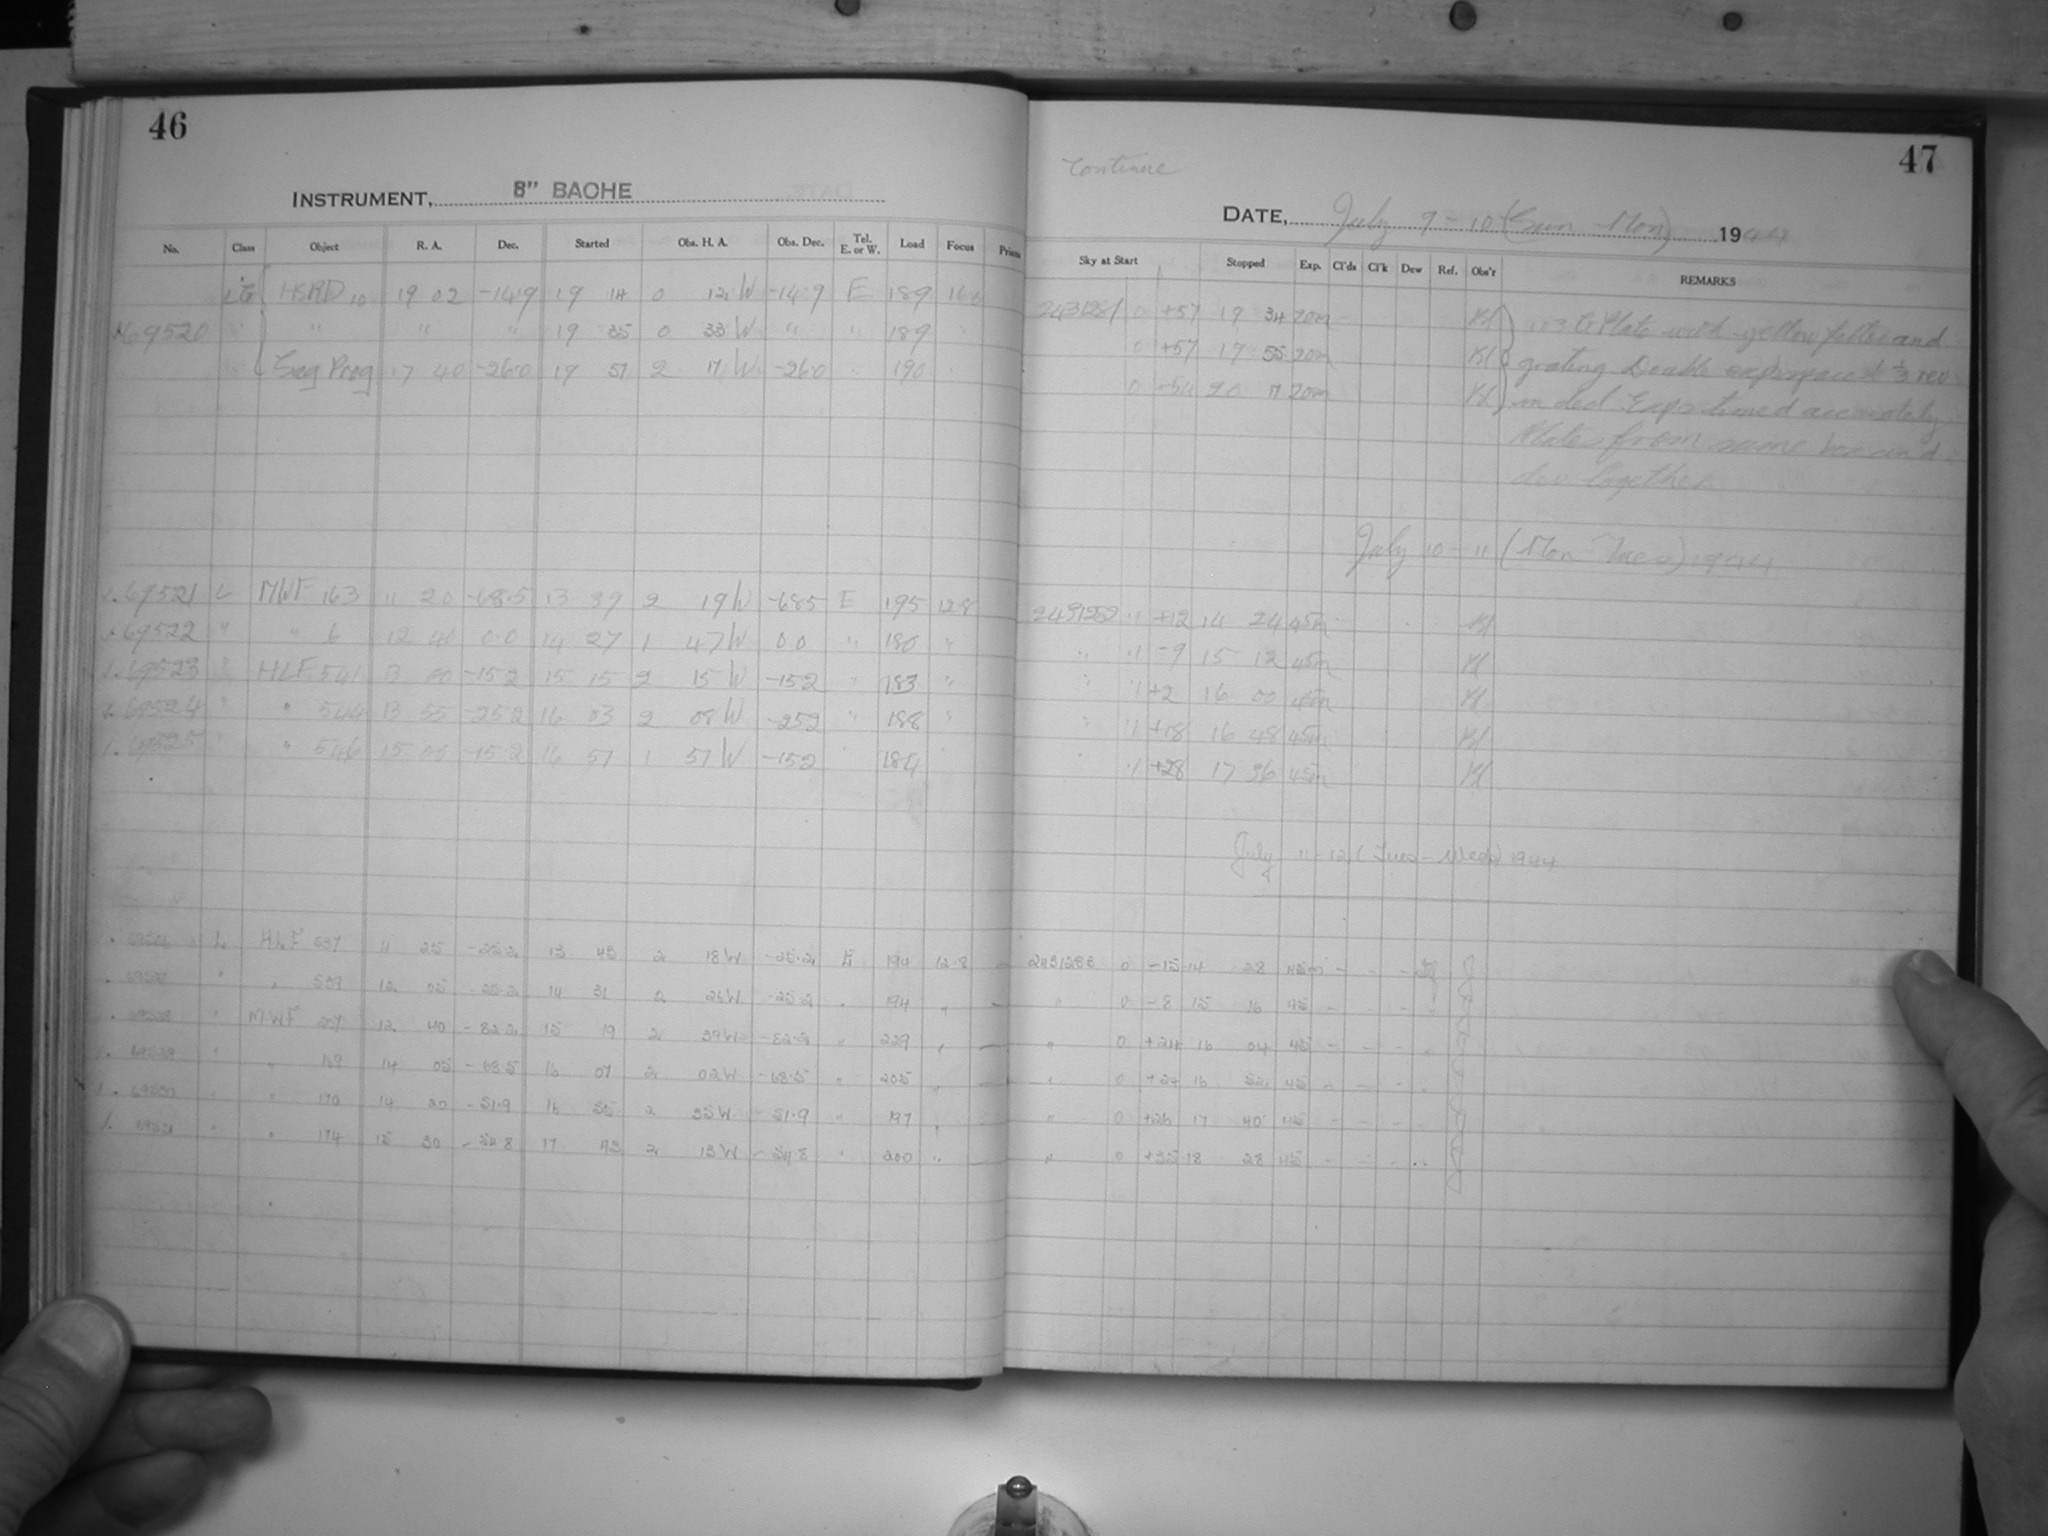 46
INSTRUMENT, 8" BAOHE
No. Class Object R. A. Dec. Started Obs. H. A. Obs. Dec. Tel. E. or W. Load Focus Prism
HSRD 10 19 02 -14.9 19 14 0 12 W -14.9 E 189 16.6
69520 " " " " 19 35 0 33 W " " 189 "
Sag Prog 17 40 -26.0 19 57 2 17 W -26.0 " 190
69521 L MWF 163 11 20 -68.5 13 39 2 19 W -68.5 E 195 12.8
69522 " " 6 12 40 0.0 14 27 1 47 W 0.0 " 180 "
69523 " HLF 541 13 00 -15.2 15 15 2 15 W -15.2 " 183 "
69524 " " 544 13 55 -25.2 16 03 2 08 W -25.2 " 188 "
69525 " " 546 15 00 -15.2 16 51 1 51 W -15.2 " 184 "
69526 L HLF 537 11 25 -25.2 13 43 2 18 W -25.2 E 194 12.8 -
69527 " " 539 12 05 -25.2 14 31 2 26 W -25.2 " 194 " -
69528 " MWF 207 12 40 -82.2 15 19 2 39 W -82.2 " 229 " -
69529 " " 169 14 05 -68.5 16 07 2 02 W -68.5 " 205 " -
69530 " " 170 14 20 -51.9 16 55 2 35 W -51.9 " 197 " -
69531 " " 174 15 30 -54.8 17 43 2 13 W -54.8 " 200 " -
47
Continue
DATE, July 9-10 (Sun-Mon) 1944
Sky at Start Stopped Exp. Cl'ds Cl'k Dew Ref. Obs'r REMARKS
2431281 0 +57 19 34 20m Kl 103 G Plate with yellow filter and
0 +57 19 55 20m Kl grating. Double exp spaced 1/3 rev
0 +54 20 17 20m Kl in decl. Exps timed accurately
Plates from same box and
dev together
July 10-11 (Mon-Tues) 1944
2431282 .1 +12 14 24 45m Kl
" .1 -9 15 12 45m Kl
" .1 +2 16 00 45m Kl
" .1 +18 16 48 45m Kl
" .1 +28 17 36 45m Kl
July 11-12 (Tues-Wed) 1944
2431283 0 -15 14 28 45m - - -
" 0 -8 15 16 45 - - -
" 0 +24 16 04 45 - - -
" 0 +24 16 52 45 - - -
" 0 +26 17 40 45 - - -
" 0 +35 18 28 45 - - -